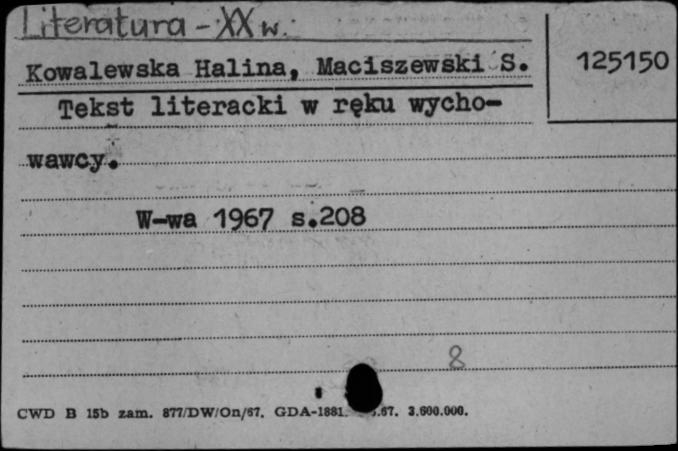 Literatura - XX w.
Kowalewska Halina, Maciszewski S.
125150
Tekst literacki w ręku wycho-
wawcy.
W-wa 1967 s.208
8
CWD B 15b zam. 877/DW/On/67. GDA-1881. .67. 3.600.000.